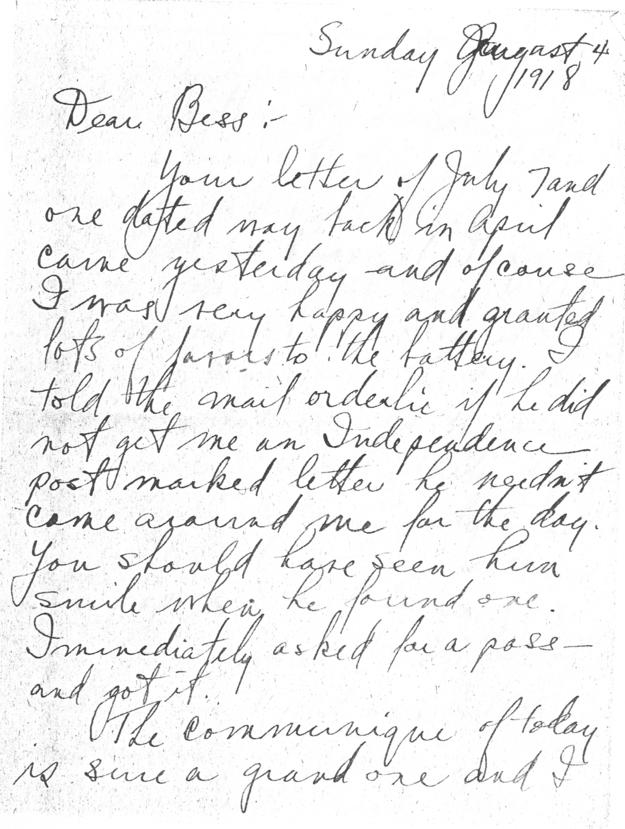 Sunday August 4
1918
Dear Bess:-
Your letter of July 7 and
one dated way back in April
came yesterday and of couse
I was very happy and granted
lots of favors to the battery. I
told the mail orderlie if he did
not get me an Independence
post marked letter he needn't
come around me for the day.
You should have seen him
smile when he found one.
Immediately asked for a pass—
and got it.
The communique of today
is sure a grand one and I